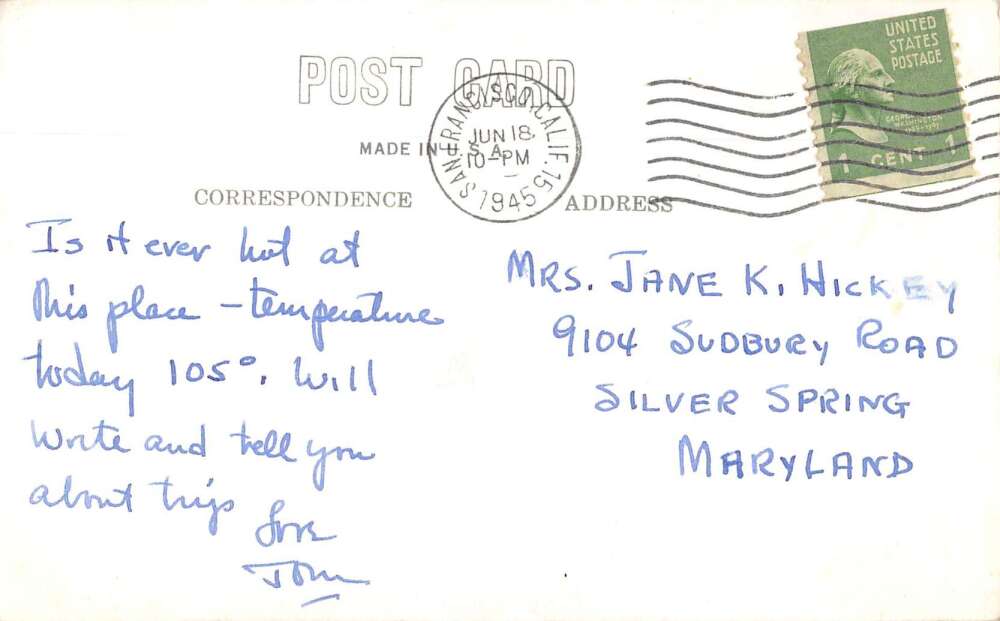 POST CARD
MADE IN U.S.A.
SAN FRANCISCO, CALIF. 15
JUN 18
10-PM
1945
UNITED
STATES
POSTAGE
GEORGE
WASHINGTON
1 CENT 1
CORRESPONDENCE
ADDRESS
Is it ever hot at
this place – temperature
today 105°. Will
write and tell you
about trip
Love
Tom
MRS. JANE K. HICKEY
9104 SUDBURY ROAD
SILVER SPRING
MARYLAND